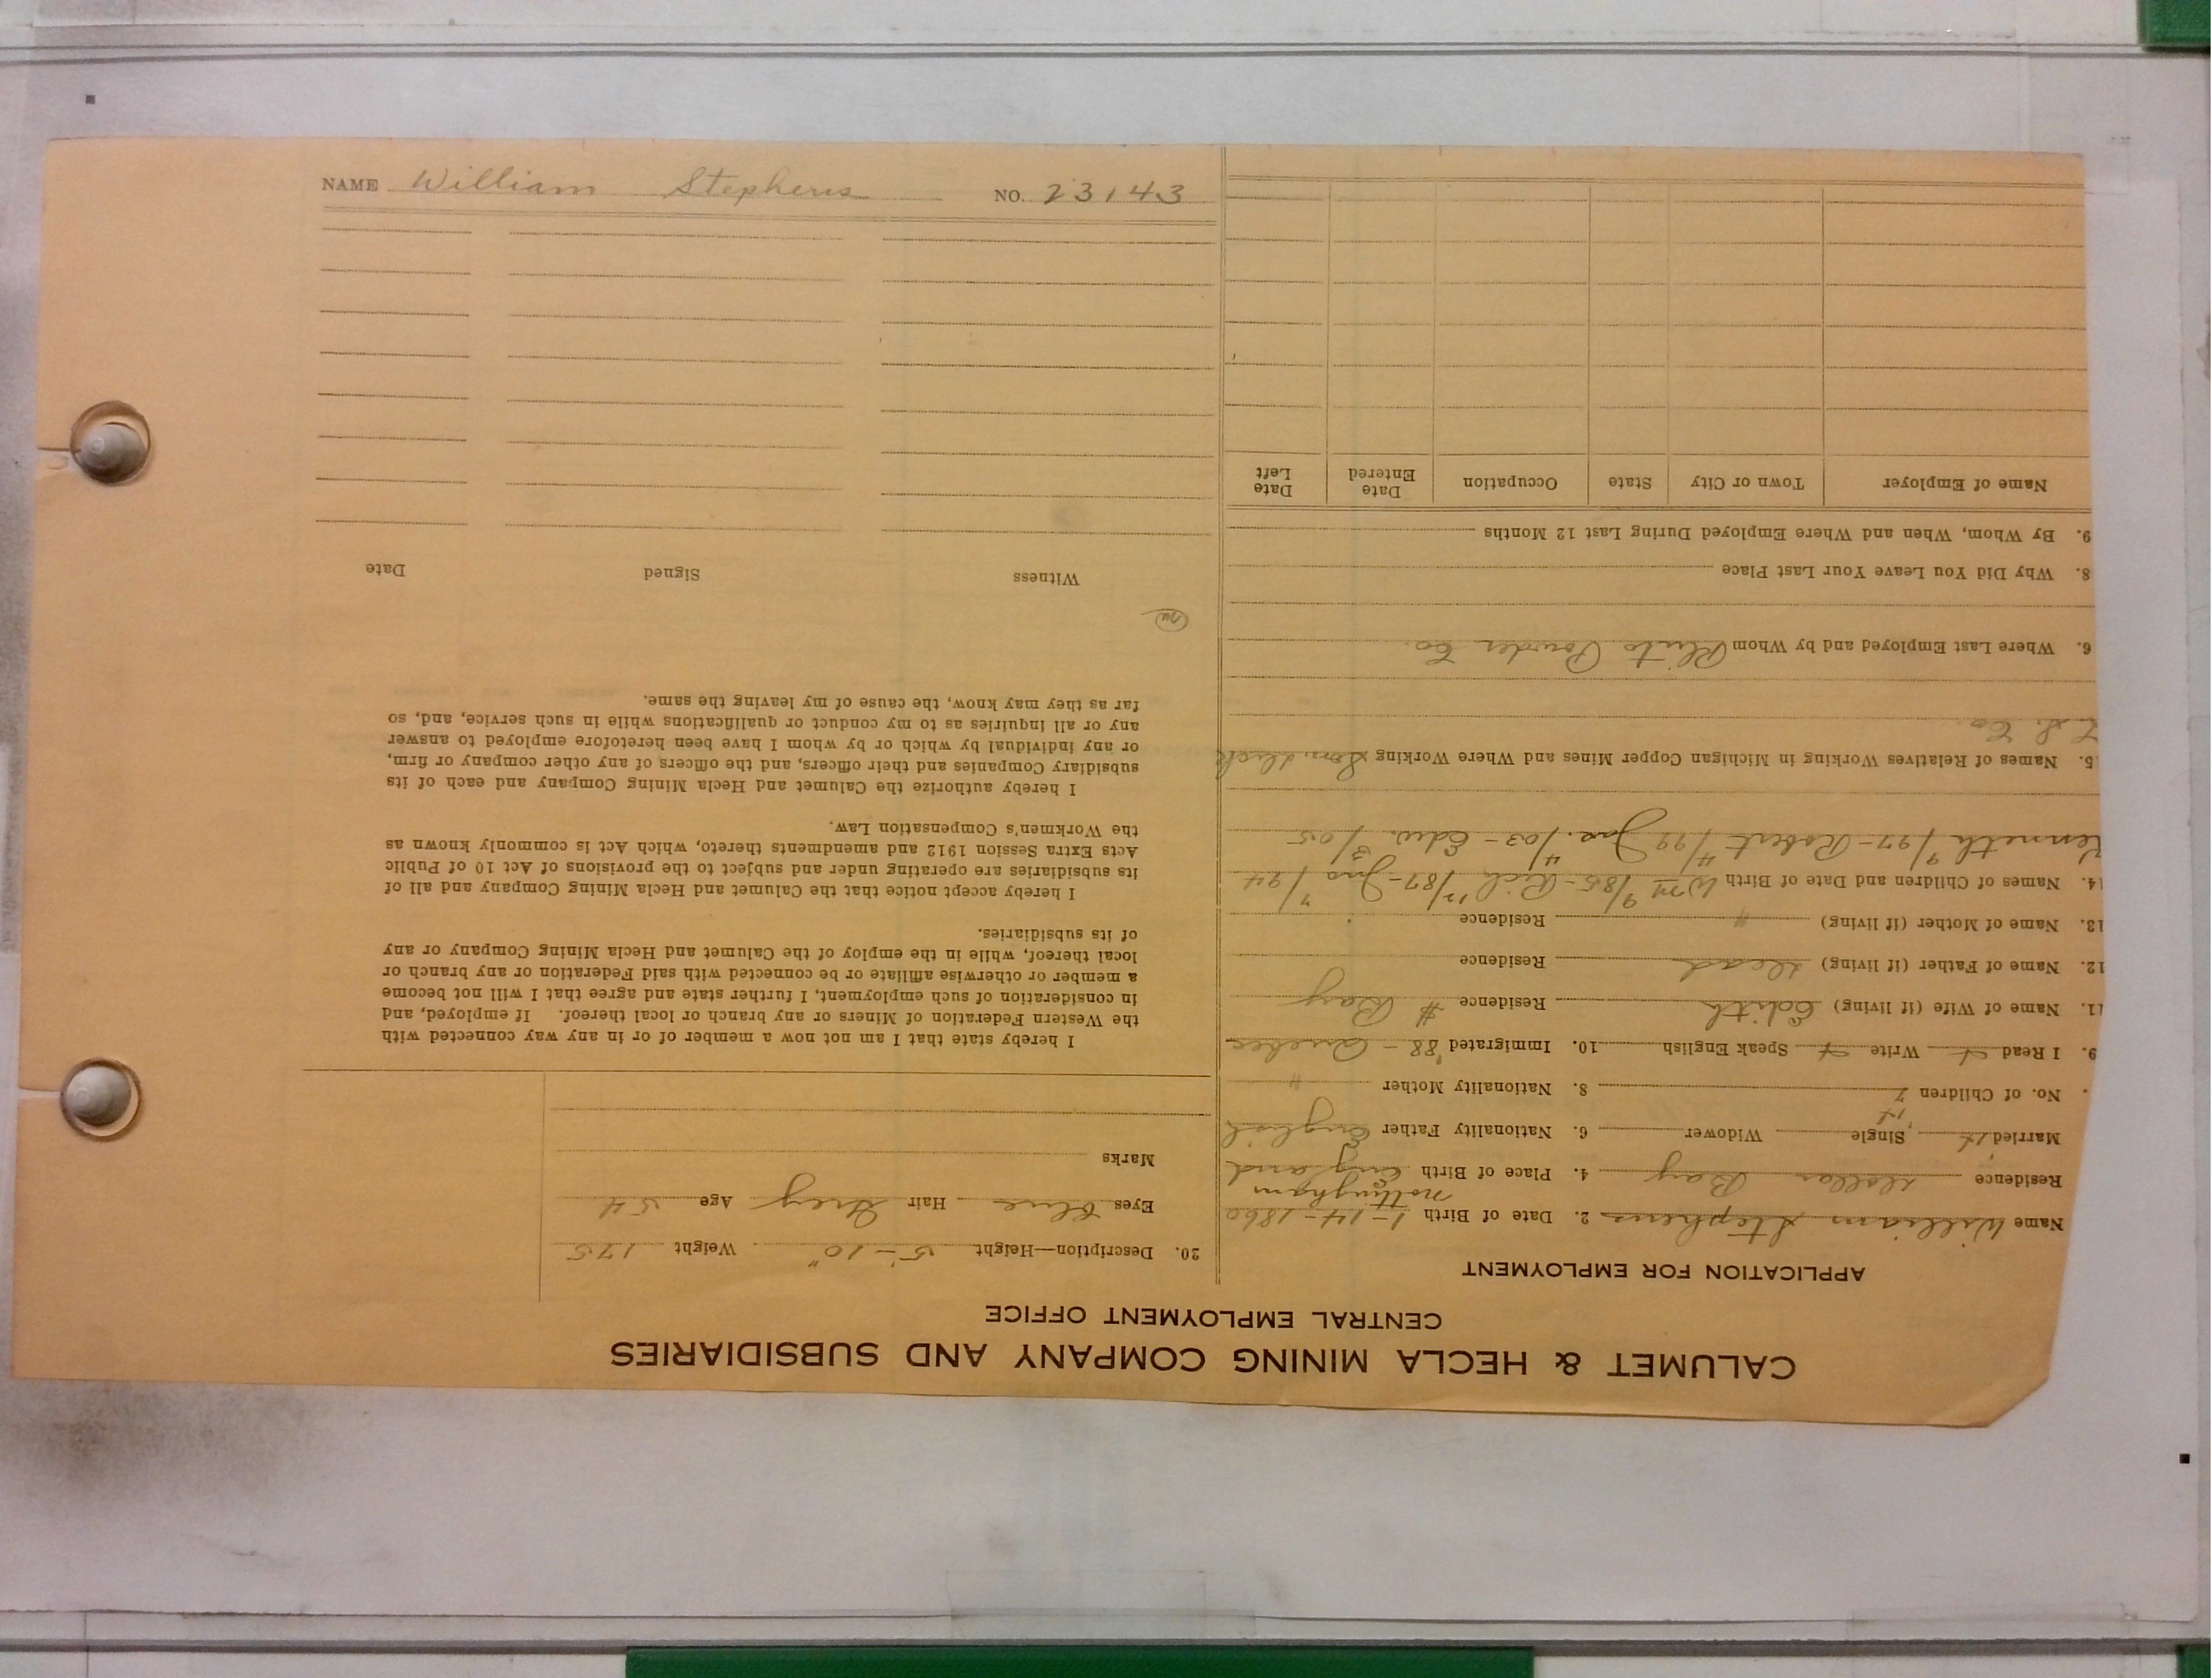 NAME William Stephens NO. 23143
CALUMET & HECLA MINING COMPANY AND SUBSIDIARIES
CENTRAL EMPLOYMENT OFFICE
APPLICATION FOR EMPLOYMENT
Name William Stephens 2. Date of Birth 1-14-1860
Nottingham
Residence Dollar Bay 4. Place of Birth England
Married Single Widower 6. Nationality Father English
No. of Children 7 8. Nationality Mother "
9. I Read Write Speak English 10. Immigrated '88 - Quebec
11. Name of Wife (if living) Edith Residence # Bay
12. Name of Father (if living) dead Residence
13. Name of Mother (if living) " Residence
14. Names of Children and Date of Birth Wm 9/85 - Rich 12/87 - Jno 7/94
Kenneth 9/97 - Robert 4/99 Jas. 4/03 - Edw. 3/05
5. Names of Relatives Working in Michigan Copper Mines and Where Working Son,
Co.
6. Where Last Employed and by Whom Powder Co.
8. Why Did You Leave Your Last Place
9. By Whom, When and Where Employed During Last 12 Months
Name of Employer Town or City State Occupation Date Entered Date Left
20. Description—Height 5'-10" Weight 175
Eyes blue Hair Grey Age 54
Marks
I hereby state that I am not now a member of or in any way connected with
the Western Federation of Miners or any branch or local thereof. If employed, and
in consideration of such employment, I further state and agree that I will not become
a member or otherwise affiliate or be connected with said Federation or any branch or
local thereof, while in the employ of the Calumet and Hecla Mining Company or any
of its subsidiaries.
I hereby accept notice that the Calumet and Hecla Mining Company and all of
its subsidiaries are operating under and subject to the provisions of Act 10 of Public
Acts Extra Session 1912 and amendments thereto, which Act is commonly known as
the Workmen's Compensation Law.
I hereby authorize the Calumet and Hecla Mining Company and each of its
subsidiary Companies and their officers, and the officers of any other company or firm,
or any individual by which or by whom I have been heretofore employed to answer
any or all inquiries as to my conduct or qualifications while in such service, and, so
far as they may know, the cause of my leaving the same.
Witness Signed Date